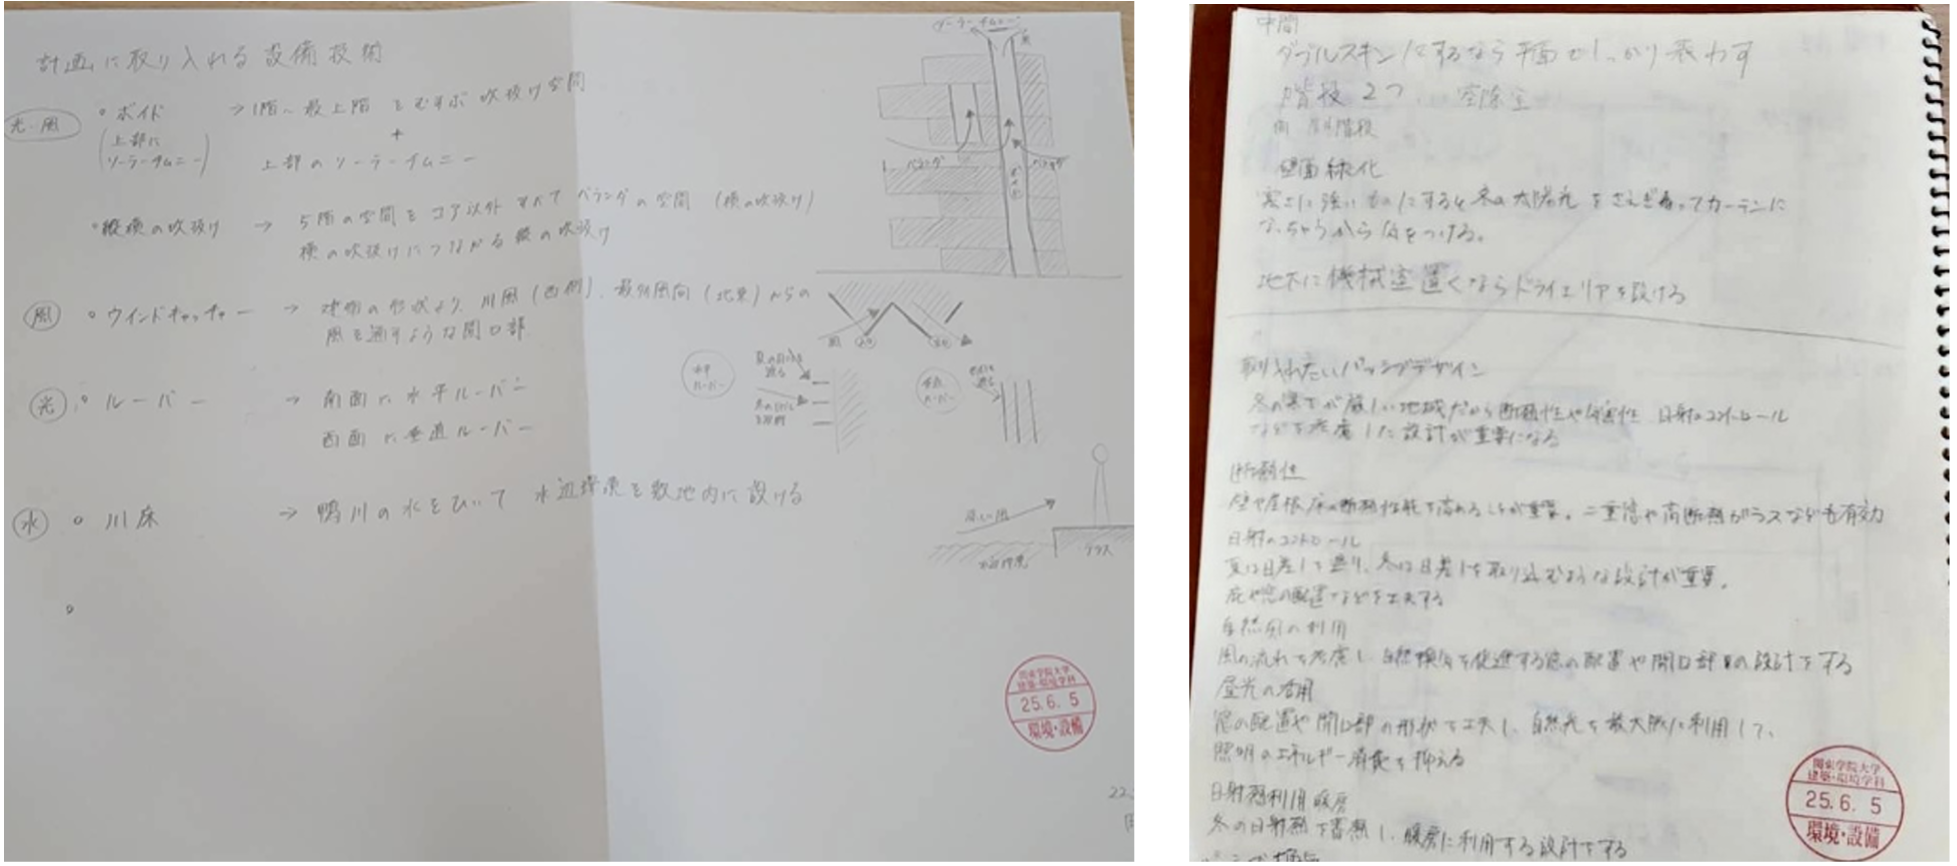 計画に取り入れる設備技術
光・風
・ボイド
(上部にソーラーチムニー)
→ 1階〜最上階をむすぶ吹抜け空間
+
上部のソーラーチムニー
・縦横の吹抜け → 5階の空間をコア以外すべてベランダの空間（横の吹抜け）
横の吹抜けにつながる縦の吹抜け
風 ・ウインドキャッチャー → 建物の形状より、川風（西側）、最多風向（北東）からの
風を通すような開口部
光 ・ルーバー → 南面に水平ルーバー
西面に垂直ルーバー
水 ・川床 → 鴨川の水をひいて 水辺環境を敷地内に設ける
ソーラーチムニー
風
ベランダ
ベランダ
ボイド
風
水平ルーバー
垂直ルーバー
涼しい風
水辺環境
テラス
関東学院大学
建築・環境学科
25.6.5
環境・設備
22
中間
ダブルスキンにするなら平面でしっかり表わす
階段2つ
屋外階段
壁面緑化
寒さに強いものにすると冬の太陽光をさえぎっってカーテンに
なっちゃうから気をつける。
地下に機械室置くならドライエリアを設ける
取り入れたいパッシブデザイン
冬の寒さが厳しい地域だから断熱性や気密性、日射のコントロール
などを考慮した設計が重要になる
断熱性
壁や屋根、床の断熱性能を高めることが重要。二重窓や高断熱ガラスなども有効
日射のコントロール
夏は日差しを遮り、冬は日差しを取り込むような設計が重要。
庇や窓の配置などを工夫する
自然風の利用
風の流れを考慮し、自然換気を促進する窓の配置や開口部の設計をする
昼光の活用
窓の配置や開口部の形状を工夫し、自然光を最大限に利用して、
照明のエネルギー消費を抑える
日射熱利用暖房
冬の日射熱を蓄熱し、暖房に利用する設計をする
関東学院大学
建築・環境学科
25.6.5
環境・設備